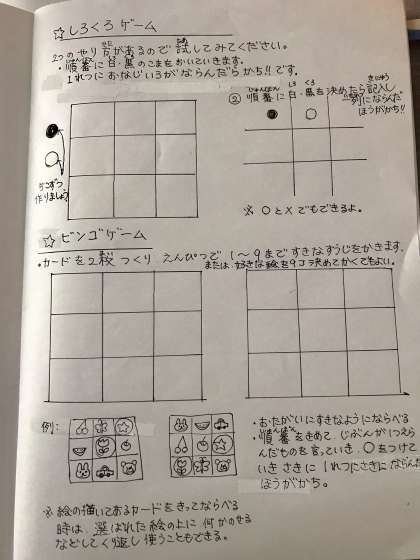 ☆しろくろゲーム
2つのやり方があるので試してみてください。
・順番に白・黒のこまをおいていきます。
1れつにおなじいろがならんだらかち!!です。
② 順番に白・黒を決めたら記入し
じゅんばん しろ くろ きにゅう
一列にならんだ
ほうがかち!!
5こずつ
作りましょう
※ ○と×でもできるよ。
☆ビンゴゲーム
・カードを2枚つくり えんぴつで 1〜9まで すきなすうじをかきます。
または、好きな絵を9コ決めてかくでもよい。
例:
・おたがいにすきなようにならべる
・順番をきめて、じぶんがつえら
んだものを言っていき、○をつけて
いき さきに 1れつにさきにならんだ
ほうがかち。
※絵の描いてあるカードをきってならべる
時は、選ばれた絵の上に何かのせる
などしてくり返し使うこともできる。